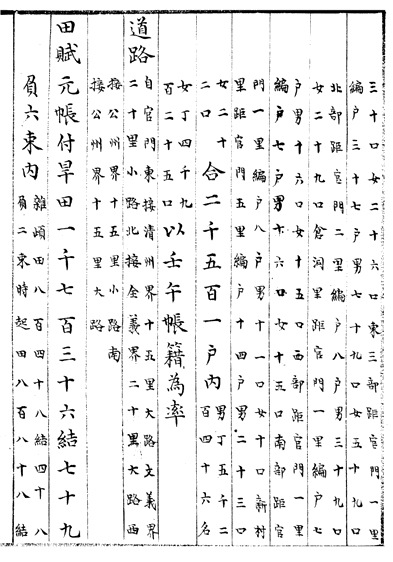 三十口女二十六口東三部距官門一里
編戶三十戶男七十九口女五十九口
北部距官門二里編戶八戶男三十九口
女二十九口倉洞里距官門一里編戶七
戶男十六口女十五口西部距官門一里
編戶七戶男六口女十三口南部距官
門一里編戶八戶男十一口女十口新村
里距官門五里編戶十四戶男二十三口
女二十二口合二千五百一戶內男丁五千二百四十六名
女丁四千九百二十五口以壬午帳籍為率
道路自官門東接清州界十五里大路文義界
二十里小路北接全義界二十里大路西
接公州界十五里小路南
接公州界十五里大路
田賦元帳付旱田一千七百三十六結七十九
負六束內雜頉田八百四十八結四十八
負二束時起田八百八十八結